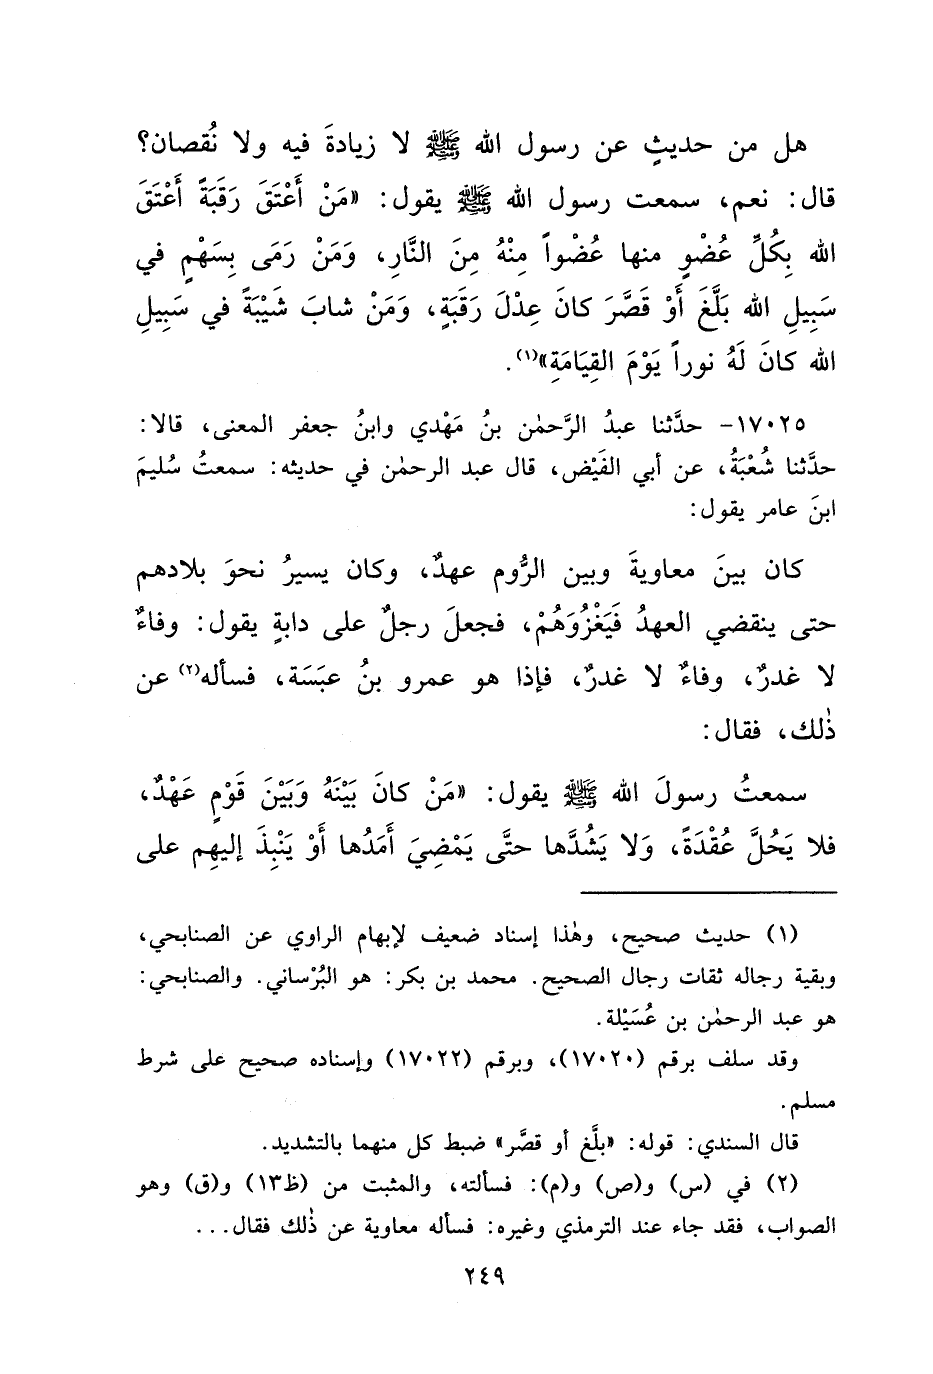 هل من حديثٍ عن رسول الله ﷺ لا زيادةَ فيه ولا نُقصان؟
قال: نعم، سمعت رسول الله ﷺ يقول: «مَنْ أَعْتَقَ رَقَبَةً أَعْتَقَ
الله بِكُلِّ عُضْوٍ منها عُضْواً مِنْهُ مِنَ النَّارِ، وَمَنْ رَمَى بِسَهْمٍ في
سَبِيلِ الله بَلَّغَ أَوْ قَصَّرَ كانَ عِدْلَ رَقَبَةٍ، وَمَنْ شابَ شَيْبَةً في سَبِيلِ
الله كانَ لَهُ نوراً يَوْمَ القِيَامَةِ»(١).
١٧٠٢٥- حدَّثنا عبدُ الرَّحمٰن بنُ مَهْدي وابنُ جعفر المعنى، قالا:
حدَّثنا شُعْبَةُ، عن أبي الفَيْض، قال عبد الرحمٰن في حديثه: سمعتُ سُليمَ
ابنَ عامر يقول:
كان بينَ معاويةَ وبين الرُّوم عهدٌ، وكان يسيرُ نحوَ بلادهم
حتى ينقضي العهدُ فَيَغْزُوَهُمْ، فجعلَ رجلٌ على دابةٍ يقول: وفاءٌ
لا غدرٌ، وفاءٌ لا غدرٌ، فإذا هو عمرو بنُ عبَسَة، فسأله(٢) عن
ذٰلك، فقال:
سمعتُ رسولَ الله ﷺ يقول: «مَنْ كانَ بَيْنَهُ وَبَيْنَ قَوْمٍ عَهْدٌ،
فلا يَحُلَّ عُقْدَةً، وَلا يَشُدَّها حتَّى يَمْضِيَ أَمَدُها أَوْ يَنْبِذَ إليهِم على
(١) حديث صحيح، وهٰذا إسناد ضعيف لإبهام الراوي عن الصنابحي،
وبقية رجاله ثقات رجال الصحيح. محمد بن بكر: هو البُرْساني. والصنابحي:
هو عبد الرحمٰن بن عُسَيْلة.
وقد سلف برقم (١٧٠٢٠)، وبرقم (١٧٠٢٢) وإسناده صحيح على شرط
مسلم.
قال السندي: قوله: «بلَّغ أو قصَّر» ضبط كل منهما بالتشديد.
(٢) في (س) و(ص) و(م): فسألته، والمثبت من (ظ١٣) و(ق) وهو
الصواب، فقد جاء عند الترمذي وغيره: فسأله معاوية عن ذٰلك فقال...
٢٤٩